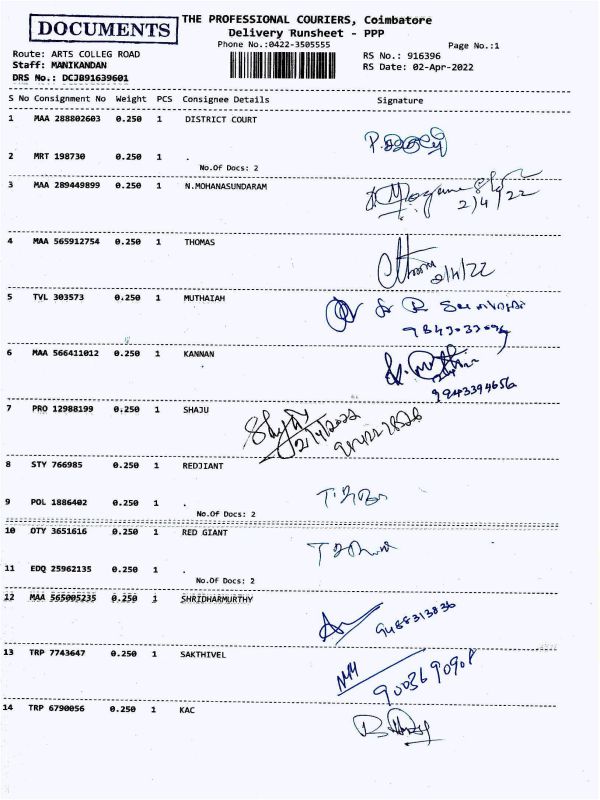 DOCUMENTS
THE PROFESSIONAL COURIERS, Coimbatore
Delivery Runsheet - PPP
Phone No.:0422-3505555
Page No.:1
Route: ARTS COLLEG ROAD
Staff: MANIKANDAN
DRS No.: DCJB91639601
RS No.: 916396
RS Date: 02-Apr-2022
S No Consignment No Weight PCS Consignee Details Signature
1 MAA 288802603 0.250 1 DISTRICT COURT
2 MRT 198730 0.250 1 .
No.Of Docs: 2
3 MAA 289449899 0.250 1 N.MOHANASUNDARAM
2/4/22
4 MAA 565912754 0.250 1 THOMAS
2/4/22
5 TVL 303573 0.250 1 MUTHAIAH
6 MAA 566411012 0.250 1 KANNAN
9943394656
7 PRO 12988199 0.250 1 SHAJU
2/4/2022
8 STY 766985 0.250 1 REDJIANT
9 POL 1886402 0.250 1 .
No.Of Docs: 2
10 OTY 3651616 0.250 1 RED GIANT
11 EDQ 25962135 0.250 1 .
No.Of Docs: 2
12 MAA 565005235 0.250 1 SHRIDHARMURTHY
9488313836
13 TRP 7743647 0.250 1 SAKTHIVEL
9003690908
14 TRP 6790056 0.250 1 KAC